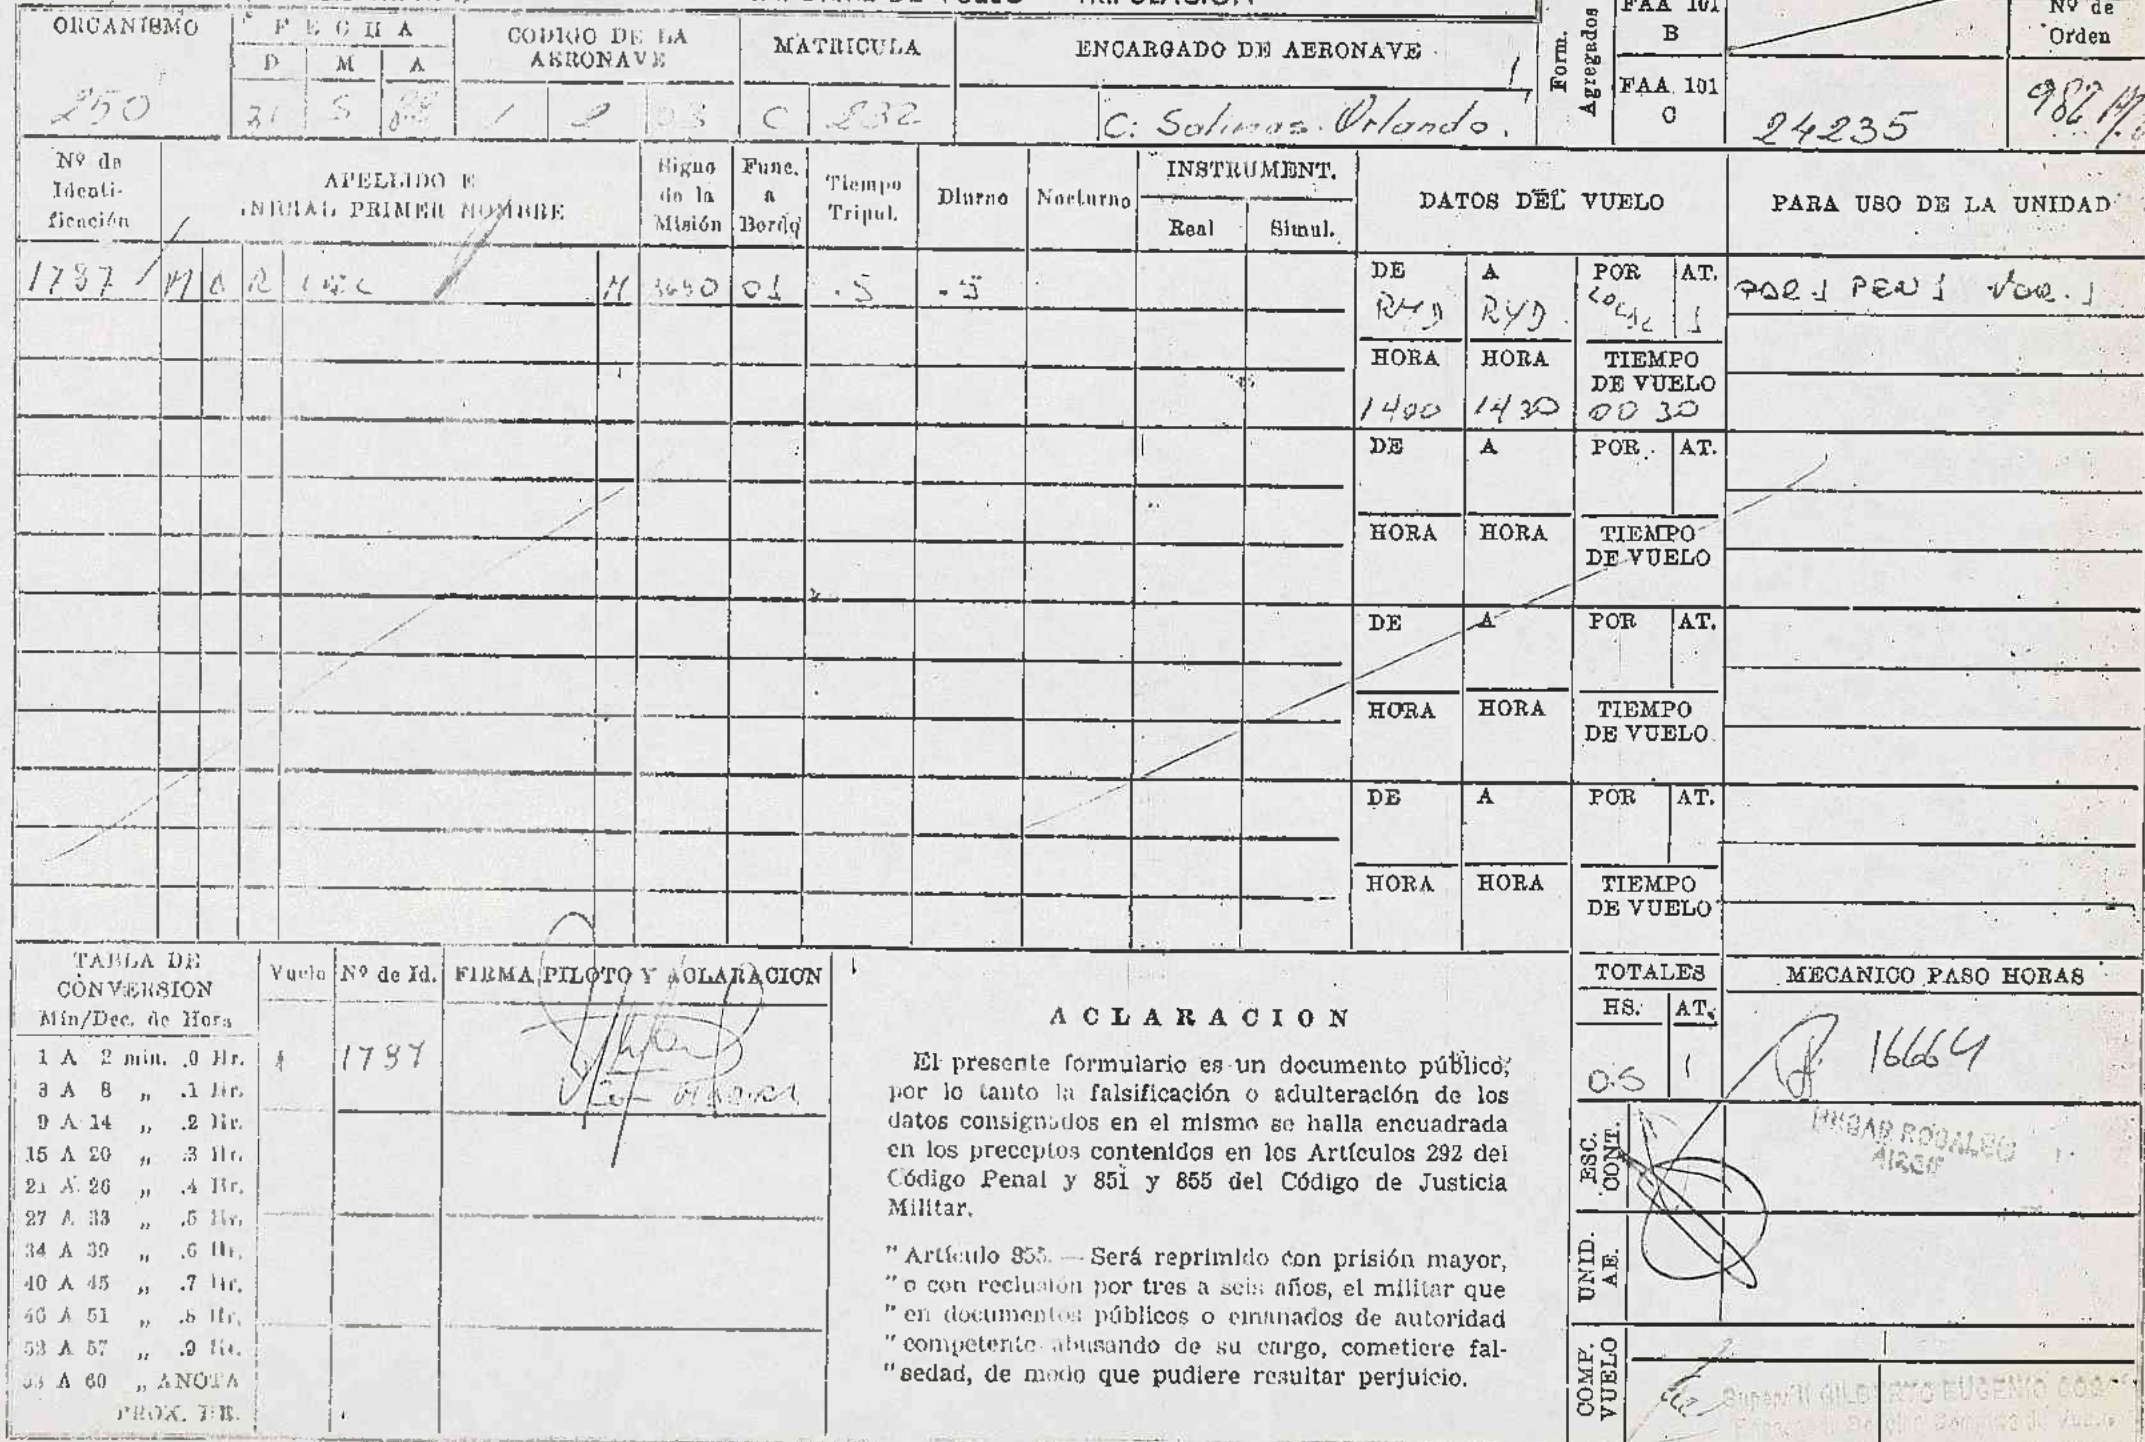 ORGANISMO FECHA CODIGO DE LA AERONAVE MATRICULA ENCARGADO DE AERONAVE Form. Agregados FAA 101 B Nº de Orden
D M A FAA 101 C
250 31 5 1 2 03 C 232 C: Salinas Orlando. 24235 982
Nº de Identificación APELLIDO E INICIAL PRIMER NOMBRE Signo de la Misión Func. a Bordo Tiempo Tripul. Diurno Nocturno INSTRUMENT. Real Simul. DATOS DEL VUELO PARA USO DE LA UNIDAD
1787 M 01 .5 .5
DE A POR AT.
RYD RYD LOCAL 1
HORA HORA TIEMPO DE VUELO
1400 1430 00 30
DE A POR AT.
HORA HORA TIEMPO DE VUELO
DE A POR AT.
HORA HORA TIEMPO DE VUELO
DE A POR AT.
HORA HORA TIEMPO DE VUELO
TABLA DE CONVERSION
Min/Dec. de Hora
1 A 2 min. .0 Hr.
3 A 8 „ .1 Hr.
9 A 14 „ .2 Hr.
15 A 20 „ .3 Hr.
21 A 26 „ .4 Hr.
27 A 33 „ .5 Hr.
34 A 39 „ .6 Hr.
40 A 45 „ .7 Hr.
46 A 51 „ .8 Hr.
52 A 57 „ .9 Hr.
A 60 „ ANOTA
PROX.
Vuelo Nº de Id. FIRMA PILOTO Y ACLARACION
1787
ACLARACION
El presente formulario es un documento público,
por lo tanto la falsificación o adulteración de los
datos consignados en el mismo se halla encuadrada
en los preceptos contenidos en los Artículos 292 del
Código Penal y 851 y 855 del Código de Justicia
Militar.
" Artículo 855. — Será reprimido con prisión mayor,
" o con reclusión por tres a seis años, el militar que
" en documentos públicos o emanados de autoridad
" competente abusando de su cargo, cometiere fal-
" sedad, de modo que pudiere resultar perjuicio.
TOTALES MECANICO PASO HORAS
HS. AT.
0.5 1 16664
ESC. CONT.
UNID. AE.
COMP. VUELO
EUGENIO